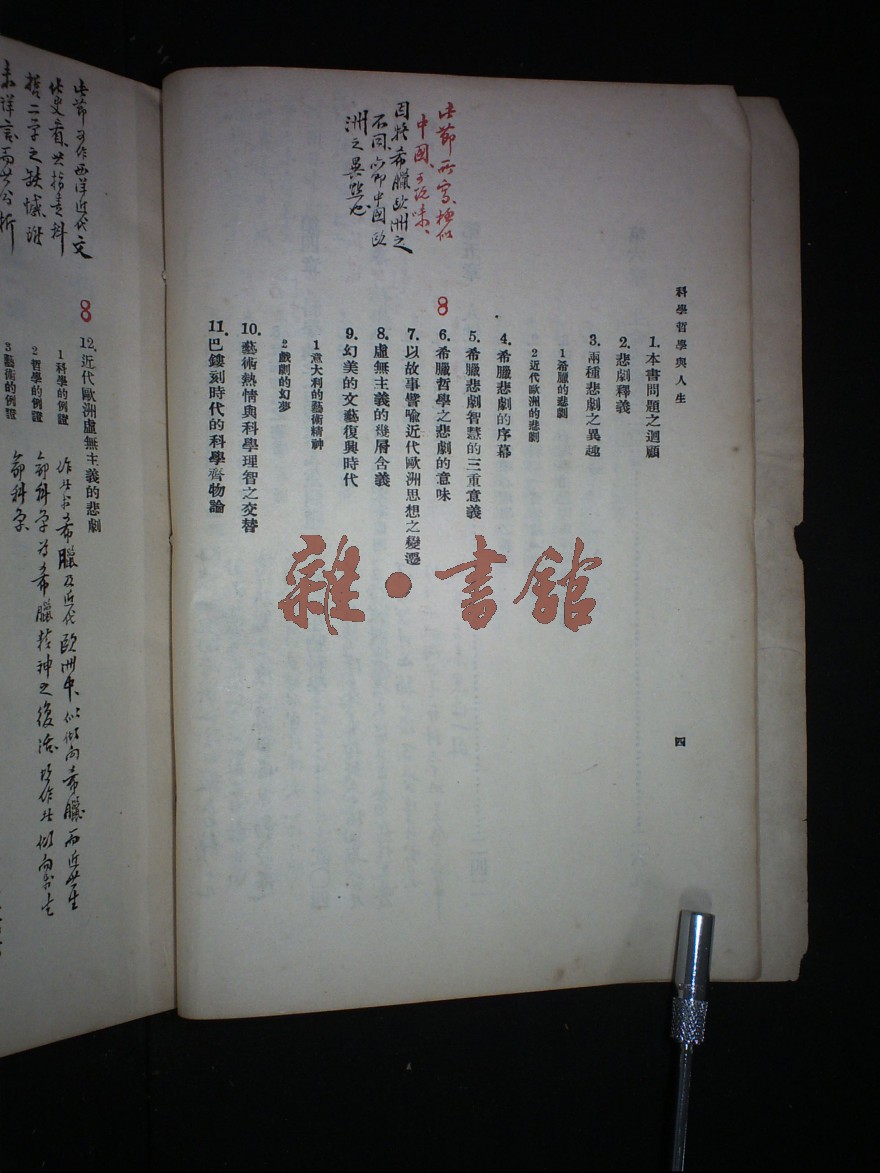 科學哲學與人生
四
1. 本書問題之迴顧
2. 悲劇釋義
3. 兩種悲劇之異趣
1 希臘的悲劇
2 近代歐洲的悲劇
4. 希臘悲劇的序幕
5. 希臘悲劇智慧的三重意義
6. 希臘哲學之悲劇的意味
7. 以故事譬喻近代歐洲思想之變遷
8. 虛無主義的幾層含義
9. 幻美的文藝復興時代
1 意大利的藝術精神
2 戲劇的幻夢
10. 藝術熱情與科學理智之交替
11. 巴鏤刻時代的科學齊物論
8
此節所寫極似
中國、可玩味、
因將希臘歐洲之
不同、亦即中國歐
洲之異點也
雜·書館
8
12. 近代歐洲虛無主義的悲劇
1 科學的例證
2 哲學的例證
3 藝術的例證
此節可作西洋近代文
化史看、其指責科
哲二學之缺憾雖
未詳言而其分析
作者於希臘及近代歐洲中、似傾向希臘
即科學為希臘精神之復活
即科學